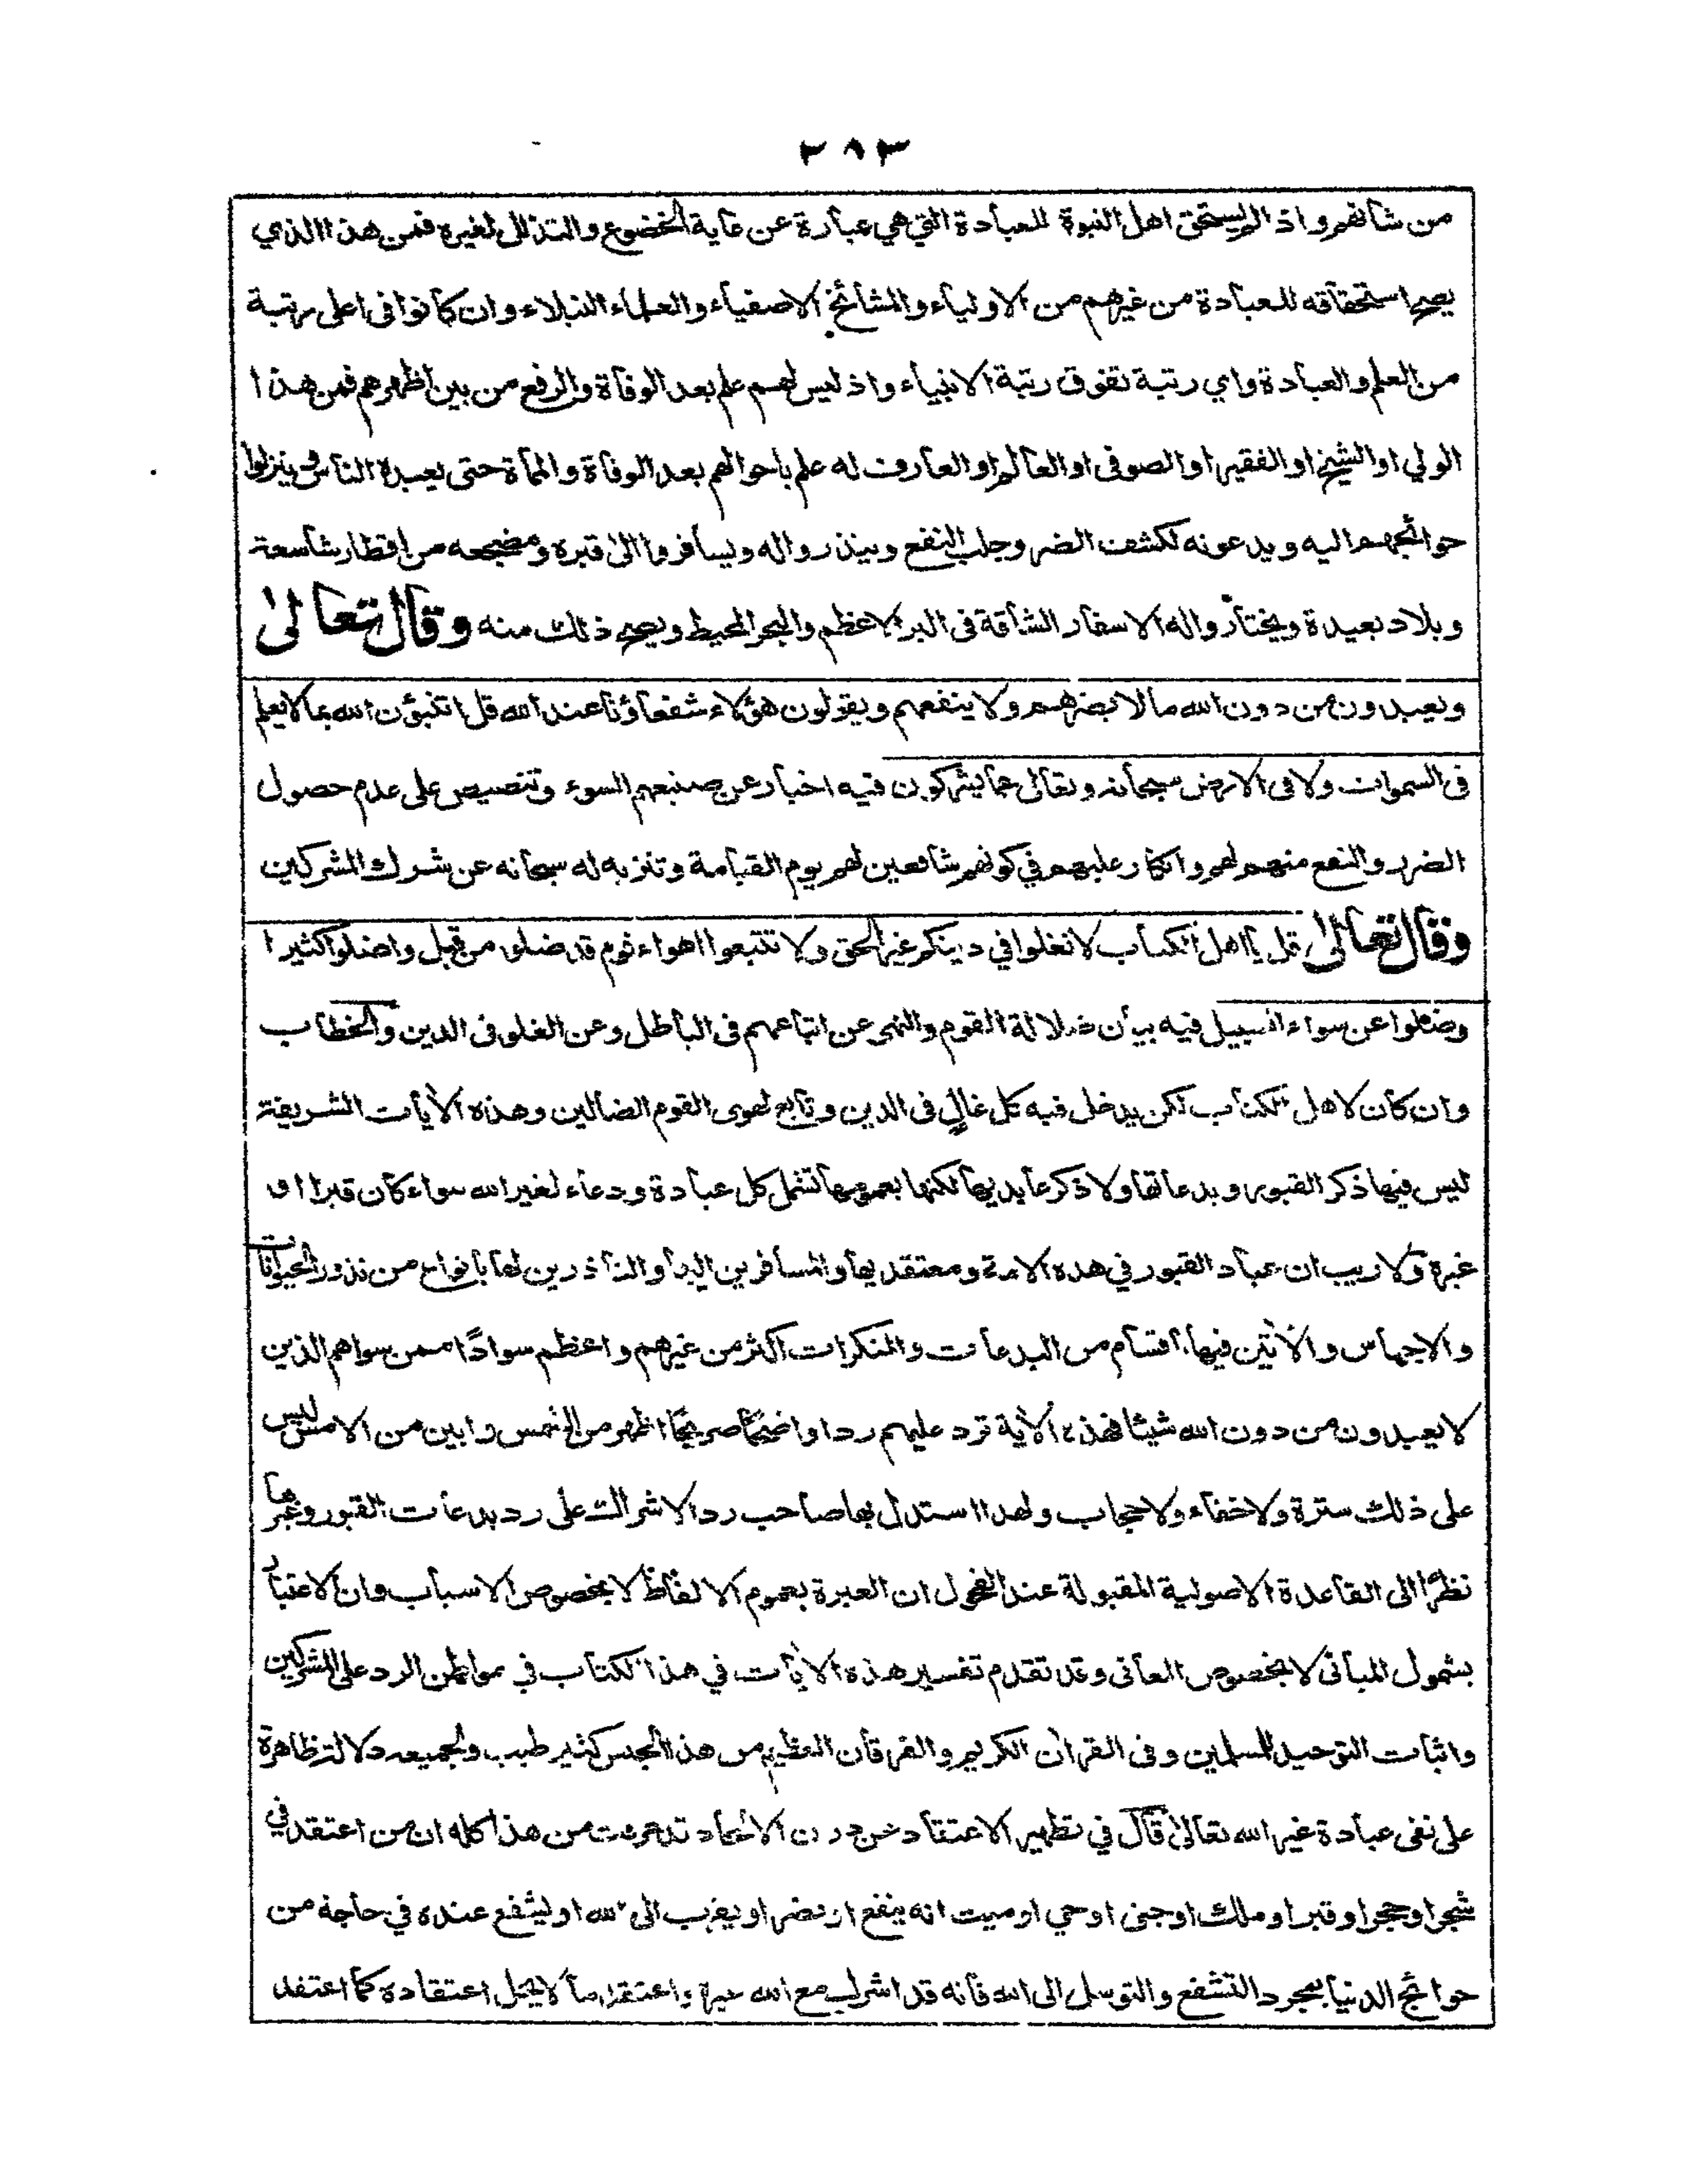 ٣٨٣
من شانهم واذ الم يستحق اهل النبوة للعبادة التي هي عبارة عن غاية الخضوع والتذلل لغيره فمن هذا الذي
يصح استحقاقه للعبادة من غيرهم من الاولياء والمشائخ الاصفياء والعلماء النبلاء وان كانوا فى اعلى رتبة
من العلم والعبادة واي رتبة تفوق رتبة الانبياء واذ ليس لهم علم بعد الوفاة والرفع من بين اظهرهم فمن هذا
الولي او الشيخ او الفقير او الصوفى او العالم او العارف له علم باحوالهم بعد الوفاة والمماة حتى يعبده الناس وينزلوا
حوائجهم اليه ويدعونه لكشف الضر وجلب النفع وينذرواله ويسافروا الى قبره ومضجعه من اقطار شاسعة
وبلاد بعيدة ويختارواله الاسفار الشاقة فى البر الاعظم والبحر المحيط ويصح ذلك منه وقال تعالى
ويعبدون من دون الله مالا يضرهم ولا ينفعهم ويقولون هؤلاء شفعاؤنا عند الله قل اتنبؤن الله بما لا يعلم
فى السموات ولا فى الارض سبحانه وتعالى عما يشركون فيه اخبار عن صنيعهم السوء وتنصيص على عدم حصول
الضرر والنفع منهم لهم وانكار عليهم في كونهم شافعين لهم يوم القيامة وتنزيه له سبحانه عن شرك المشركين
وقال تعالى قل يااهل الكتاب لا تغلوا في دينكم غير الحق ولا تتبعوا اهواء قوم قد ضلوا من قبل واضلوا كثيرا
وضلوا عن سواء السبيل فيه بيان ضلالة القوم والنهى عن اتباعهم فى الباطل وعن الغلو فى الدين والخطاب
وان كان لاهل الكتاب لكن يدخل فيه كل غالٍ فى الدين وتابع لهوى القوم الضالين وهذه الأيات الشريفة
ليس فيها ذكر القبور وبدعاتها ولا ذكر عابديها لكنها بعمومها تشمل كل عبادة ودعاء لغير الله سواء كان قبرا او
غيره ولا ريب ان عباد القبور في هذه الامة ومعتقديها والمسافرين اليها والناذرين لها بانواع من نذور الحيوانات
والاجناس والأتين فيها باقسام من البدعات والمنكرات اكثر من غيرهم واعظم سوادًا ممن سواهم الذين
لا يعبدون من دون الله شيئا فهذه الأية ترد عليهم ردا واضحًا صريحًا اظهر من الشمس وابين من الامس ليس
على ذلك سترة ولا خفاء ولا حجاب ولهذا استدل بها صاحب رد الاشراك على رد بدعات القبور وغيرها
نظرًا الى القاعدة الاصولية المقبولة عند الفحول ان العبرة بعموم الالفاظ لا بخصوص الاسباب وان الاعتبار
بشمول المبانى لا بخصوص المعانى وقد تقدم تفسير هذه الأيات في هذا الكتاب في مواطن الرد على المشركين
واثبات التوحيد للمسلمين وفى القرأن الكريم والفرقان العظيم من هذا الجنس كثير طيب ولجميعه دلالة ظاهرة
على نفى عبادة غير الله تعالى قال في تطهير الاعتقاد عن درن الالحاد قد عرفت من هذا كله ان من اعتقد في
شجر او حجر او قبر او ملك او جنى او حي او ميت انه ينفع او يضر او يقرب الى الله او يشفع عنده في حاجة من
حوائج الدنيا بمجرد التشفع والتوسل الى الله فانه قد اشرك مع الله غيره واعتقد ما لا يحل اعتقاده كما اعتقد